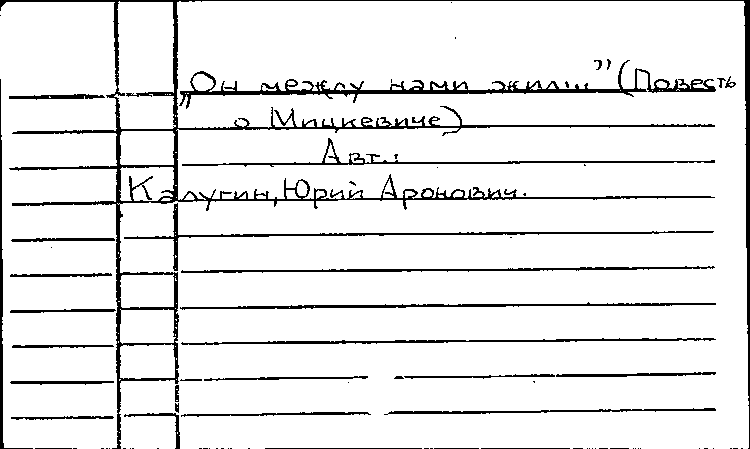 „Он между нами жил..." (Повесть
о Мицкевиче)
Авт.:
Калугин, Юрий Аронович.